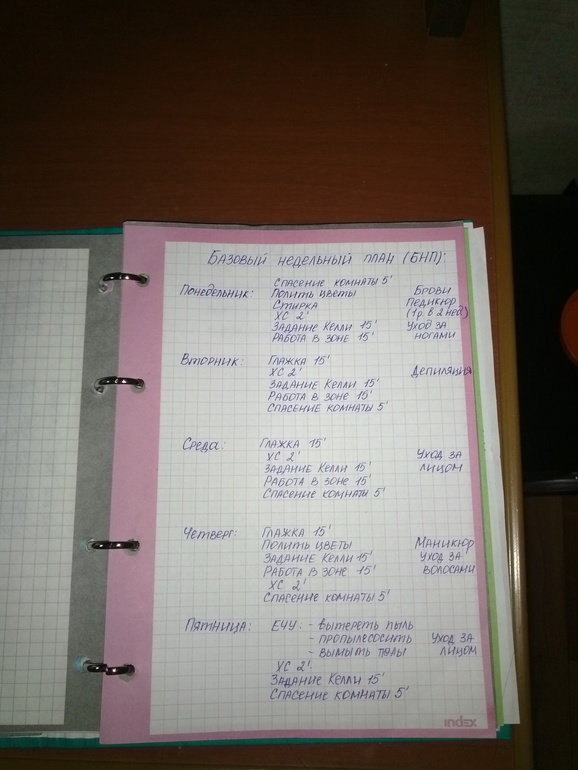 Базовый недельный план (БНП):
Спасение комнаты 5'
Понедельник: Полить цветы Брови
Стирка Педикюр
ХС 2' (1 р. в 2 нед)
Задание Келли 15' Уход за
Работа в зоне 15' ногами
Вторник: Глажка 15'
ХС 2' Депиляция
Задание Келли 15'
Работа в зоне 15'
Спасение комнаты 5'
Среда: Глажка 15'
ХС 2' Уход за
Задание Келли 15' лицом
Работа в зоне 15'
Спасение комнаты 5'
Четверг: Глажка 15'
Полить цветы Маникюр
Задание Келли 15' Уход за
Работа в зоне 15' волосами
ХС 2'
Спасение комнаты 5'
Пятница: ЕЧУ: - вытереть пыль
- пропылесосить Уход за
- вымыть полы лицом
ХС 2'
Задание Келли 15'
Спасение комнаты 5'
index